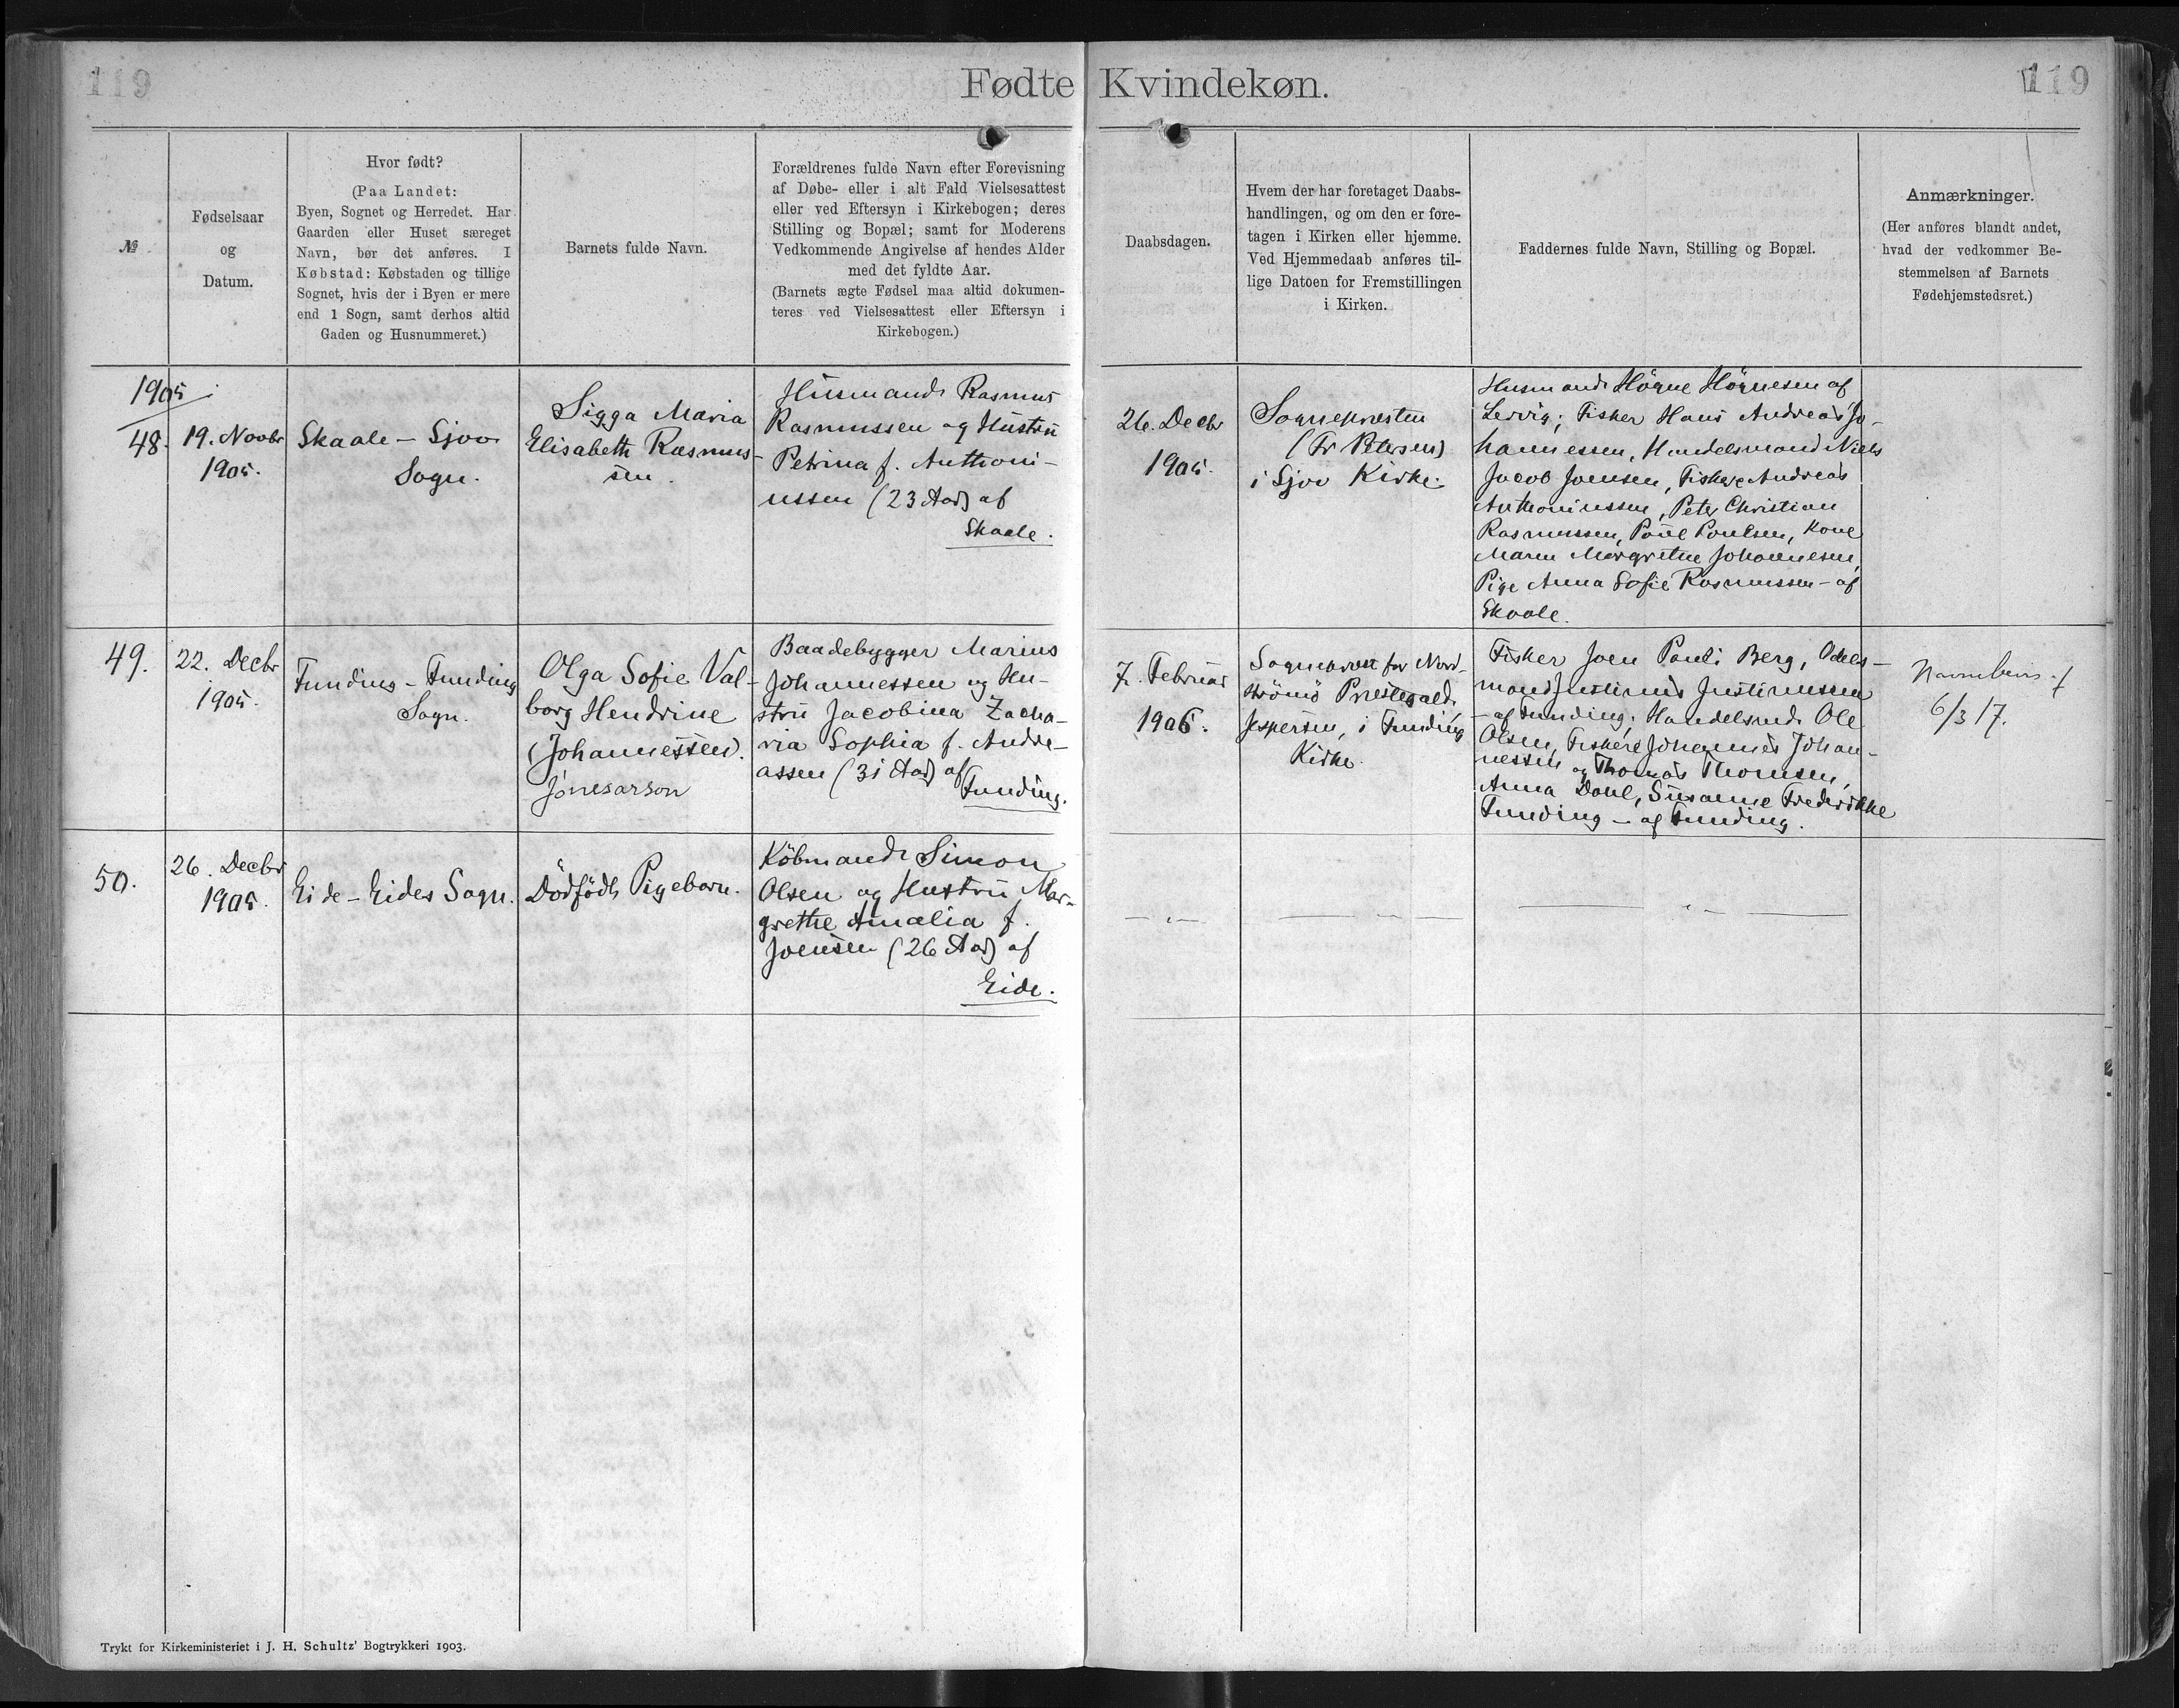 119
Fødte Kvindekøn.
119
№
Fødselsaar
og
Datum.
Hvor født?
(Paa Landet:
Byen, Sognet og Herredet. Har
Gaarden eller Huset særeget
Navn, bør det anføres. I
Købstad: Købstaden og tillige
Sognet, hvis der i Byen er mere
end 1 Sogn, samt derhos altid
Gaden og Husnummeret.)
Barnets fulde Navn.
Forældrenes fulde Navn efter Forevisning
af Døbe- eller i alt Fald Vielsesattest
eller ved Eftersyn i Kirkebogen; deres
Stilling og Bopæl; samt for Moderens
Vedkommende Angivelse af hendes Alder
med det fyldte Aar.
(Barnets ægte Fødsel maa altid dokumen-
teres ved Vielsesattest eller Eftersyn i
Kirkebogen.)
Daabsdagen.
Hvem der har foretaget Daabs-
handlingen, og om den er fore-
tagen i Kirken eller hjemme.
Ved Hjemmedaab anføres til-
lige Datoen for Fremstillingen
i Kirken.
Faddernes fulde Navn, Stilling og Bopæl.
Anmærkninger.
(Her anføres blandt andet,
hvad der vedkommer Be-
stemmelsen af Barnets
Fødehjemstedsret.)
1905
48.
19. Novbr
1905.
Skaale - Sjov
Sogn.
Sigga Maria
Elisabeth Rasmus-
sen.
Husmand Rasmus
Rasmussen og Hustru
Petrina f. Anthoni-
ussen (23 Aar) af
Skaale.
26. Decbr
1905.
Sognepræsten
(Fr Petersen)
i Sjov Kirke.
Husmand Högne Högnesen af
Lervig; Fisker Hans Andreas Jo-
hannessen, Handelsmand Niels
Jacob Joensen, Fiskere Andreas
Anthoniussen, Peter Christian
Rasmussen, Poul Poulsen, Kone
Maren Margrethe Johannesen,
Pige Anna Sofie Rasmussen - af
Skaale.
49.
22. Decbr
1905.
Funding - Funding
Sogn.
Olga Sofie Val-
borg Hendrine
(Johannessen).
Jónesarson
Baadebygger Marius
Johannessen og Hu-
stru Jacobina Zacha-
ria Sophia f. Andre-
assen (31 Aar) af
Funding.
7. Februar
1906.
Sognepræst for Nord-
strömö Præstegæld,
Jespersen, i Funding
Kirke.
Fisker Joen Pauli Berg, Odels-
mand Justinus Justinussen
- af Funding; Handelsmd. Ole
Olsen, Fiskere Johannes Johan-
nessen og Thomas Thomsen,
Anna Dahl, Susanne Frederikke
Funding - af Funding.
6/3 17.
50.
26. Decbr
1905.
Eide - Eides Sogn.
Dödfödt Pigebarn.
Købmand Simon
Olsen og Hustru Mar-
grethe Amalia f.
Joensen (26 Aar) af
Eide.
Trykt for Kirkeministeriet i J. H. Schultz' Bogtrykkeri 1903.